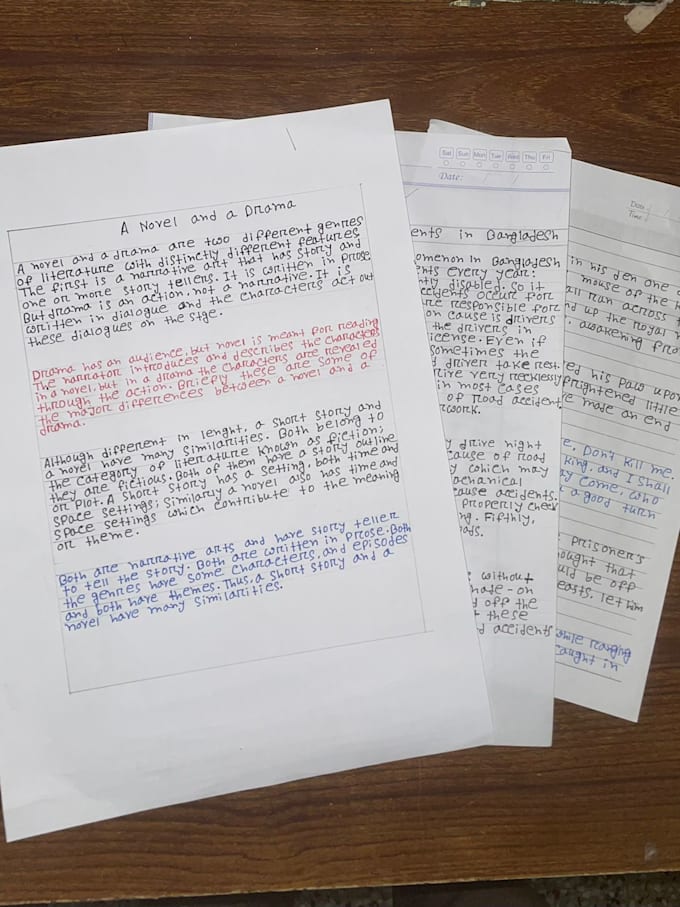 A Novel and a Drama
A novel and a drama are two different genres
of literature with distinctly different features
The first is a narrative art that has story and
one or more story tellers. It is written in prose
But drama is an action, not a narrative. It is
written in dialogue and the characters act out
these dialogues on the stge.
Drama has an audience, but novel is meant for reading
The narrator introduces and describes the characters
in a novel, but in a drama the characters are revealed
through the action. Briefly these are some of
the major differences between a novel and a
drama.
Although different in lenght, a short story and
a novel have many similarities. Both belong to
the category of literature known as fiction;
they are fictious. Both of them have a story outline
or plot. A short story has a setting, both time and
space settings; similarly a novel also has time and
space settings which contribute to the meaning
or theme.
Both are narrative arts and have story teller
to tell the story. Both are written in prose. Both
the genres have some characters, and episodes
and both have themes. Thus, a short story and a
novel have many similarities.
Sat Sun Mon Tue Wed Thu Fri
Date:
ents in Bangladesh
omenon In Bangladesh
ents every year:
ntly disabled. So it
ccidents occur for
are responsible for
on cause is drivers
the drivers in
icense. Even if
sometimes the
driver take rest.
rive very recklessly
in most cases
of road accident
rwork.
y drive night
cause of road
y which may
echanical
cause accidents.
properly check
ng. Fifthly,
oads.
without
made-on
d off the
t these
d accidents
Date
Time
in his den one
mouse of the
all ran across
nd up the royal
awakening fro
ed his paw upon
frightened little
re made an end
e. Don't kill me.
king, and I shall
ay come, who
a good turn
prisoner's
ought that
uld be off
easts. let him
while ranging
caught in